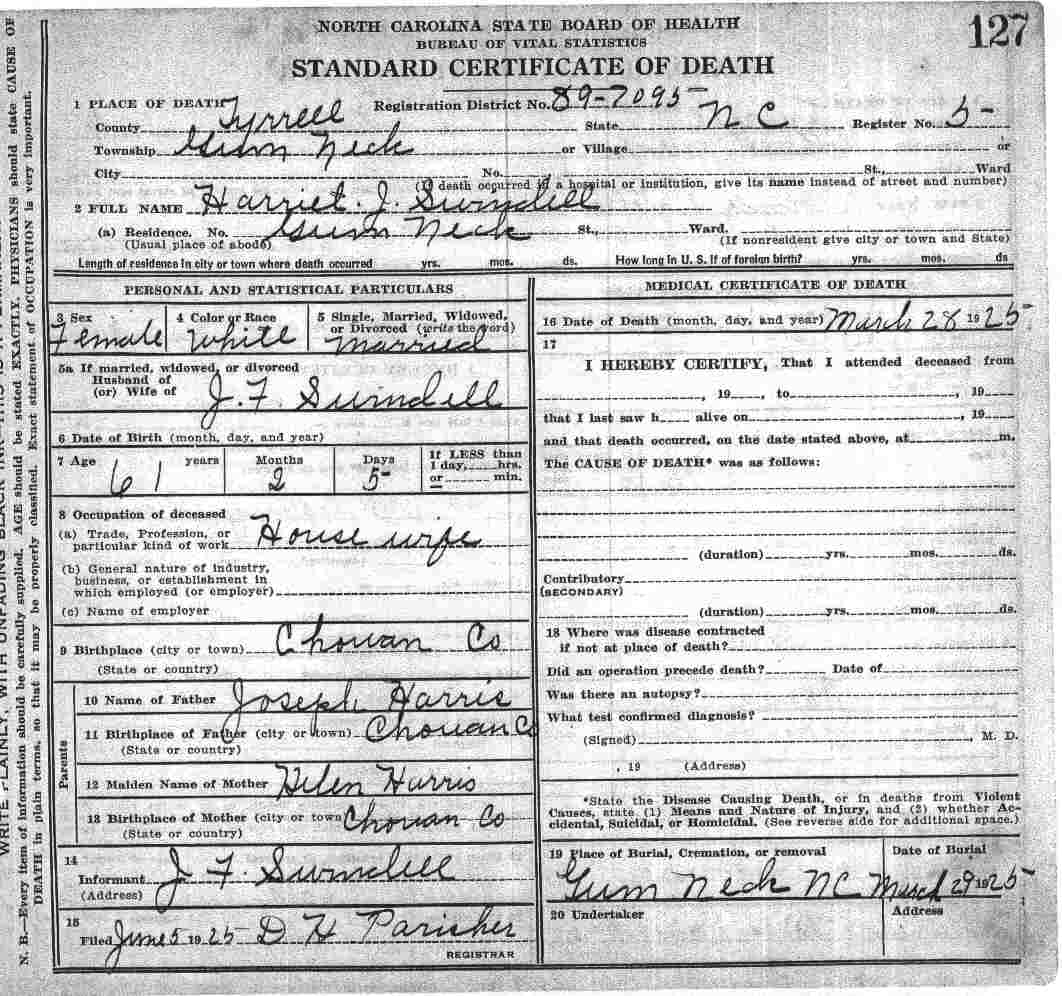 127
NORTH CAROLINA STATE BOARD OF HEALTH
BUREAU OF VITAL STATISTICS
STANDARD CERTIFICATE OF DEATH
1 PLACE OF DEATH Registration District No. 89-7095
County Tyrrell State N C Register No. 5-
Township Gum Neck or Village or
City No. St., Ward
(If death occurred in a hospital or institution, give its name instead of street and number)
2 FULL NAME Harriet. J. Swindell
(a) Residence. No. Gum Neck St., Ward.
(Usual place of abode) (If nonresident give city or town and State)
Length of residence in city or town where death occurred yrs. mos. ds. How long in U. S. if of foreign birth? yrs. mos. ds
PERSONAL AND STATISTICAL PARTICULARS
3 Sex 4 Color or Race 5 Single, Married, Widowed,
or Divorced (write the word)
Female White Married
5a If married, widowed, or divorced
Husband of
(or) Wife of J. F. Swindell
6 Date of Birth (month, day, and year)
7 Age years Months Days If LESS than
1 day, hrs.
61 2 5 or min.
8 Occupation of deceased
(a) Trade, Profession, or
particular kind of work House wife
(b) General nature of industry,
business, or establishment in
which employed (or employer)
(c) Name of employer
9 Birthplace (city or town) Chowan Co
(State or country)
Parents
10 Name of Father Joseph Harris
11 Birthplace of Father (city or town) Chowan Co
(State or country)
12 Maiden Name of Mother Helen Harris
13 Birthplace of Mother (city or town Chowan Co
(State or country)
14
Informant J F Swindell
(Address)
15
Filed June 5 1925 D H Parisher
REGISTRAR
MEDICAL CERTIFICATE OF DEATH
16 Date of Death (month, day, and year) March 28 1925
17
I HEREBY CERTIFY, That I attended deceased from
, 19 , to , 19
that I last saw h alive on , 19
and that death occurred, on the date stated above, at m.
The CAUSE OF DEATH* was as follows:
(duration) yrs. mos. ds.
Contributory
(SECONDARY)
(duration) yrs. mos. ds.
18 Where was disease contracted
if not at place of death?
Did an operation precede death? Date of
Was there an autopsy?
What test confirmed diagnosis?
(Signed) , M. D.
, 19 (Address)
*State the Disease Causing Death, or in deaths from Violent
Causes, state (1) Means and Nature of Injury, and (2) whether Ac-
cidental, Suicidal, or Homicidal. (See reverse side for additional space.)
19 Place of Burial, Cremation, or removal Date of Burial
Gum Neck NC March 29 1925
20 Undertaker Address
N. B.—Every item of information should be carefully supplied. AGE should be stated EXACTLY. PHYSICIANS should state CAUSE OF
DEATH in plain terms, so that it may be properly classified. Exact statement of OCCUPATION is very important.
WRITE PLAINLY, WITH UNFADING BLACK INK